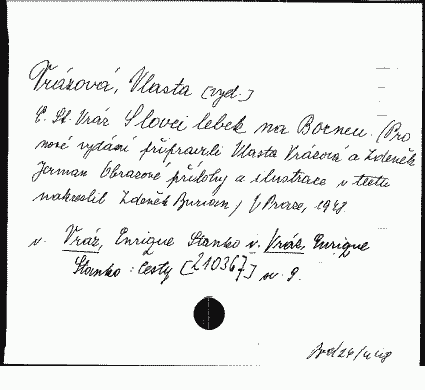 Vrázová, Vlasta [vyd.]
E. St. Vráz Slovci lebek na Borneu. (Pro
nové vydání připravili Vlasta Vrázová a Zdeněk
Jerman Obrazové přílohy a ilustrace v textu
nakreslil Zdeněk Burian) V Praze, 1948.
v. Vráz, Enrique Stanko v. Vráz, Enrique
Stanko: Cesty [210367] sv. 9.